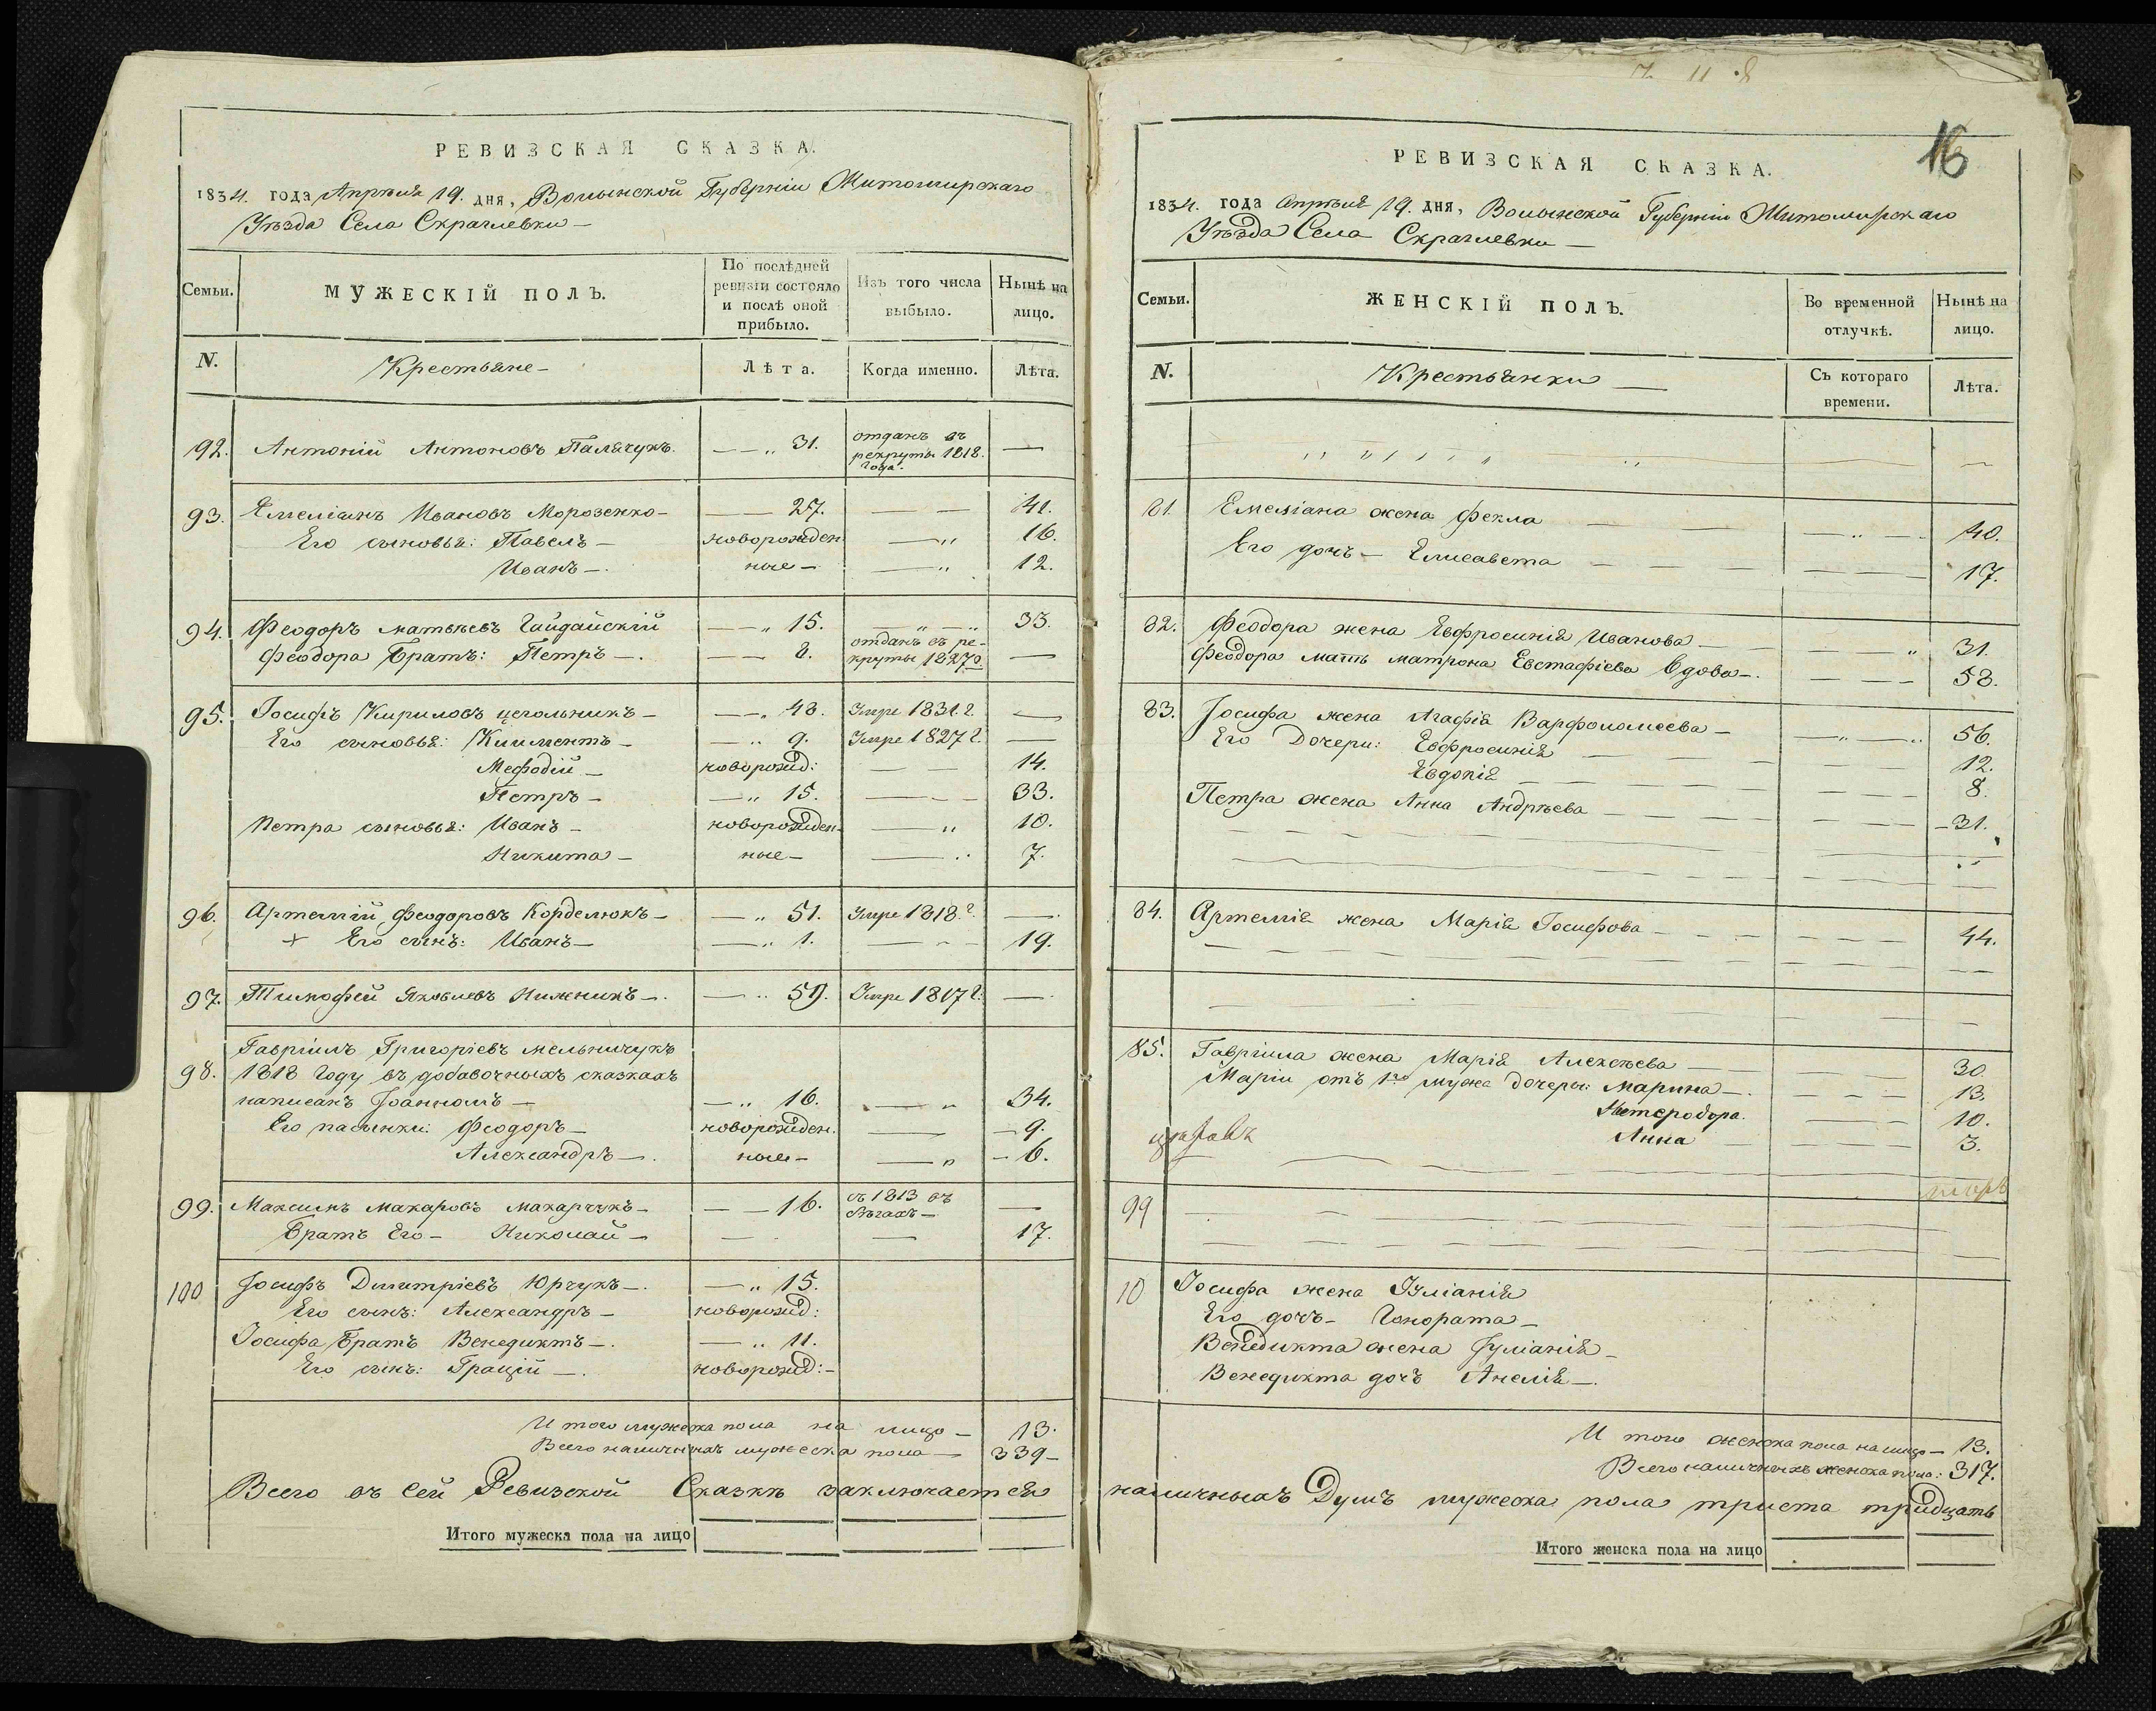 РЕВИЗСКАЯ СКАЗКА.
1834. года Апрѣля 19. дня, Волынской Губерніи Житомирскаго
Уѣзда Села Скраглевки —
Семьи.
МУЖЕСКІЙ ПОЛЪ.
По послѣдней ревизіи состояло и послѣ оной прибыло.
Изъ того числа выбыло.
Нынѣ на лицо.
N.
Крестьяне —
Лѣта.
Когда именно.
Лѣта.
92. Антоній Антоновъ Палячукъ. — — „ 31. отданъ въ рекруты 1818. года. —
93. Емеліанъ Ивановъ Морозенко — — — 27. — — 41.
Его сыновья: Павелъ — новорожден — „ 16.
Иванъ —. ные — — „ 12.
94. Феодоръ матвѣевъ Гайдайскій — „ 15. „ — „ 33.
Феодора Братъ: Петръ —. — — 8. отданъ въ рекруты 1827 г. —
95. Іосифъ Кириловъ цегольникъ — — „ 48. Умре 1831 г. —
Его сыновья: Климентъ — — „ 9. Умре 1827 г. —
Мефодій — новорожд: — — 14.
Петръ — — „ 15. — — 33.
Петра сыновья: Иванъ — новорожден- — „ 10.
Никита — ные — — „ 7.
96. Артемій Феодоровъ Корделюкъ — — „ 51. Умре 1818. г. —.
+ Его сынъ: Иванъ — — „ 1. — — 19.
97. Тимофей Яковлевъ Нижникъ —. — „ 59. Умре 1817 г. —.
98. Гавріилъ Григоріевъ мельничукъ
1818 Году въ добавочныхъ сказкахъ
написанъ Іоанномъ — — „ 16. — „ 34.
Его пасынки: Феодоръ — новорожден. — — 9.
Александръ —. ные — — „ — 6.
99. Максимъ макаровъ макарчукъ — — — 16. съ 1813 въ бѣгахъ — —
Братъ Его — Николай — — — 17.
100 Іосифъ Димитріевъ Юрчукъ —. — „ 15.
Его сынъ: Александръ — новорожд:
Іосифа Братъ Венедиктъ —. — „ 11.
Его сынъ: Грацій —. новорожд: —
И того мужеска пола на лицо — 13.
Всего наличныхъ мужеска пола — 339 —
Всего въ сей Ревизской Сказкѣ заключается
Итого мужеска пола на лицо
16
РЕВИЗСКАЯ СКАЗКА.
1834. года Апрѣля 19. дня, Волынской Губерніи Житомирскаго
Уѣзда Села Скраглевки —
Семьи.
ЖЕНСКІЙ ПОЛЪ.
Во временной отлучкѣ.
Нынѣ на лицо.
N.
Крестьянки —
Съ котораго времени.
Лѣта.
81. Емеліана жена Фекла — — „ — 40.
Его дочь — Елисавета — — — 17.
82. Феодора жена Евфросинія Иванова — — — „ 31.
Феодора мать матрона Евстафіева вдова —. — — — 58.
83. Іосифа жена Агафія Варфоломеева — — „ — „ 56.
Его Дочери: Евфросинія — — 12.
Евдокія — — 8.
Петра жена Анна Андрѣева — — — 31.
84. Артемія жена Марія Іосифова — — — 44.
85. Гавріила жена Марія Алексѣева — — 30.
Маріи отъ 1го мужа дочери: Марина —. — — — 13.
Нетеродора. — — 10.
Анна — — 3.
99
10 Іосифа жена Іуліанія
Его дочь — Гонората —
Венедикта жена Іуліанія —
Венедикта дочь Анелія —.
И того женска пола на лицо — 13.
Всего наличныхъ женска пола: 317.
наличныхъ Душъ мужеска пола триста тридцать
Итого женска пола на лицо